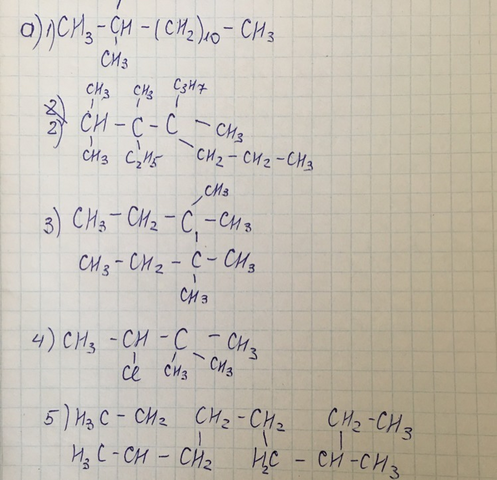 а) 1) CH₃ - CH - (CH₂)₁₀ - CH₃
CH₃
CH₃ CH₃ C₃H₇
2) CH - C - C - CH₃
CH₃ C₂H₅ CH₂ - CH₂ - CH₃
CH₃
3) CH₃ - CH₂ - C - CH₃
CH₃ - CH₂ - C - CH₃
CH₃
4) CH₃ - CH - C - CH₃
Cl CH₃ CH₃
5) H₃C - CH₂ CH₂ - CH₂ CH₂ - CH₃
H₃C - CH - CH₂ H₂C - CH - CH₃